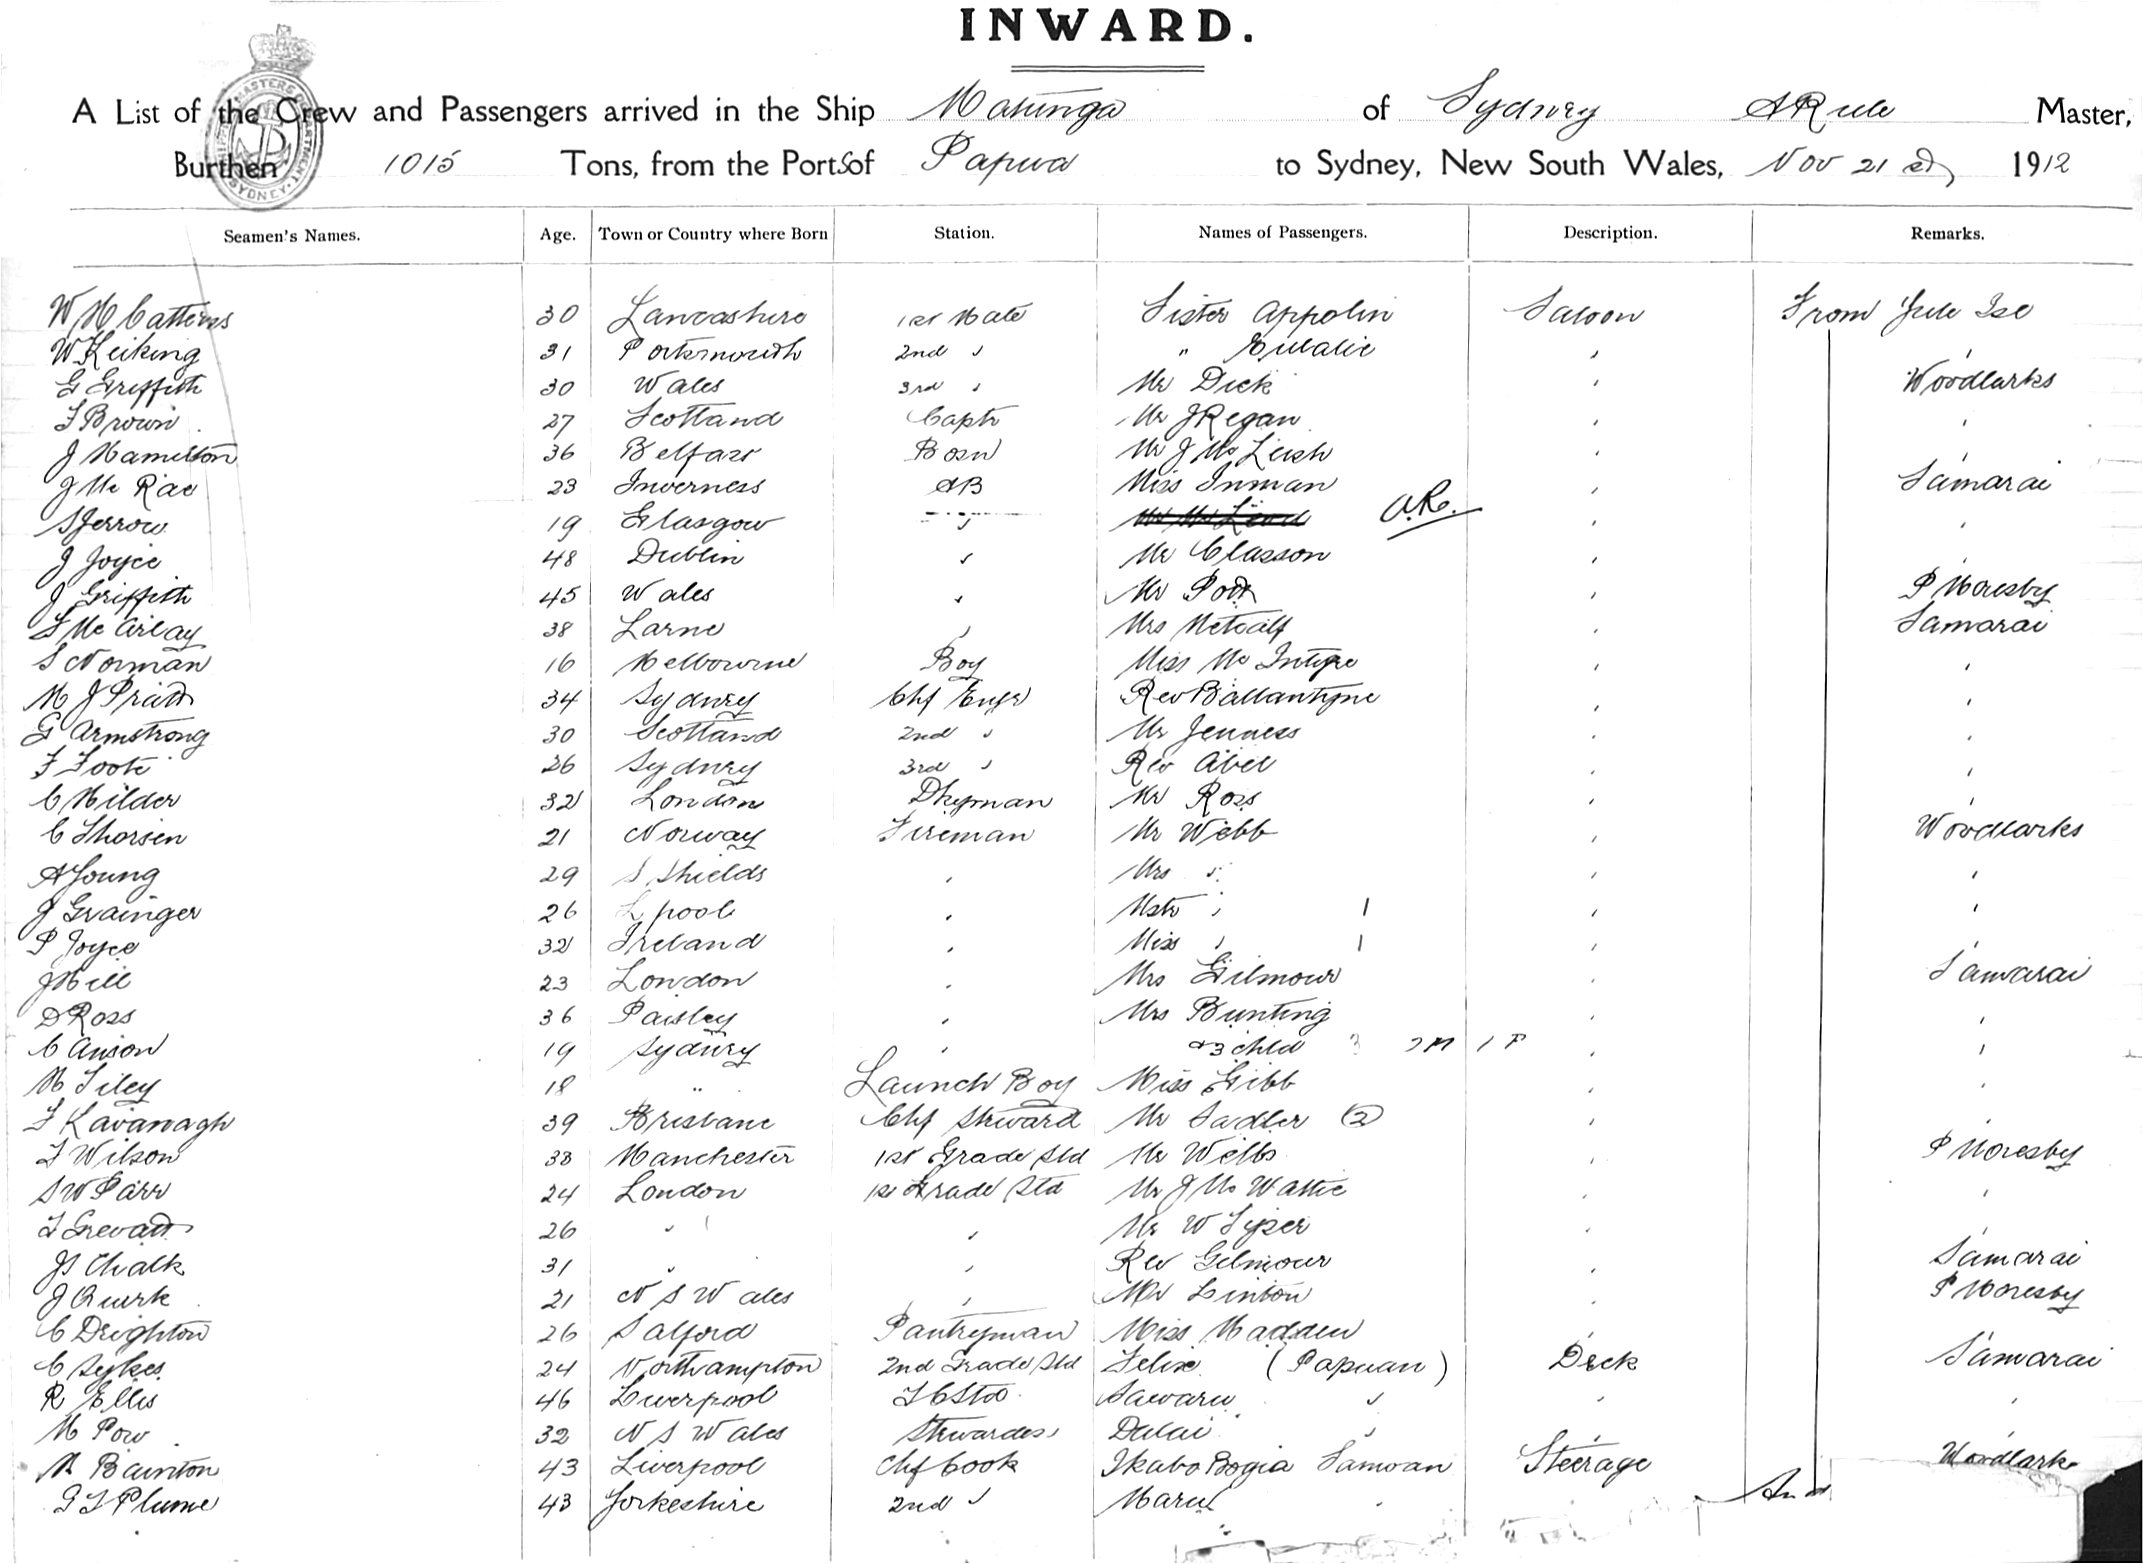 INWARD.
A List of the Crew and Passengers arrived in the Ship Matunga of Sydney A Rule Master,
Burthen 1015 Tons, from the Port s of Papua to Sydney, New South Wales, Nov 21 st 1912
Seamen's Names. Age. Town or Country where Born Station. Names of Passengers. Description. Remarks.
W H Catterns 30 Lancashire 1st Mate Sister Appolin Saloon From Yule Isl
W Keiking 31 Portsmouth 2nd " " Eulalie " "
G Griffith 30 Wales 3rd " Mr Dick " Woodlarks
F Brown 27 Scotland Captr Mr J Regan " "
J Hamilton 36 Belfast Bosn Mr J Mc Leish " "
J Mc Rae 23 Inverness AB Miss Inman " Samarai
S Jerrow 19 Glasgow " A.R. " "
J Joyce 48 Dublin " Mr Classon " "
J Griffith 45 Wales " Mr Pott " P Moresby
F Mc Aulay 38 Larne " Mrs Metcalf " Samarai
S Norman 16 Melbourne Boy Miss Mc Intyre " "
H J Pratt 34 Sydney Chf Engr Rev Ballantyne " "
G Armstrong 30 Scotland 2nd " Mr Jenness " "
F Foote 26 Sydney 3rd " Rev Abel " "
C Hilder 32 London Dkyman Mr Ross " "
C Thorsen 21 Norway Fireman Mr Webb " Woodlarks
A Young 29 S Shields " Mrs " " "
J Grainger 26 L pool " Mstr " 1 " "
P Joyce 32 Ireland " Miss " 1 " "
J Hill 23 London " Mrs Gilmour " Samarai
D Ross 36 Paisley " Mrs Bunting " "
C Anson 19 Sydney " & 3 chld 3 2 M 1 F " "
H Tiley 18 " Launch Boy Miss Gibb " "
F Kavanagh 39 Brisbane Chf Steward Mr Sadler (2) " "
F Wilson 38 Manchester 1st Grade Std Mr Wells " P Moresby
S W Parr 24 London 1st Grade Std Mr J Mc Wattie " "
T Grevatt 26 " " Mr W Tyser " "
J S Chalk 31 " " Rev Gilmour " Samarai
J Quirk 21 N S Wales " Mr Linton " P Moresby
C Deighton 26 Salford Pantryman Miss Madden "
C Sykes 24 Northampton 2nd Grade Std Felix (Papuan) Deck Samarai
R Ellis 46 Liverpool Sawaru " " "
M Pow 32 N S Wales Stewardess Dalai " " "
H Bainton 43 Liverpool Chf Cook Ikabo Bogia Samoan Steerage Woodlark
G T Plume 43 Yorkeshire 2nd " Maru "